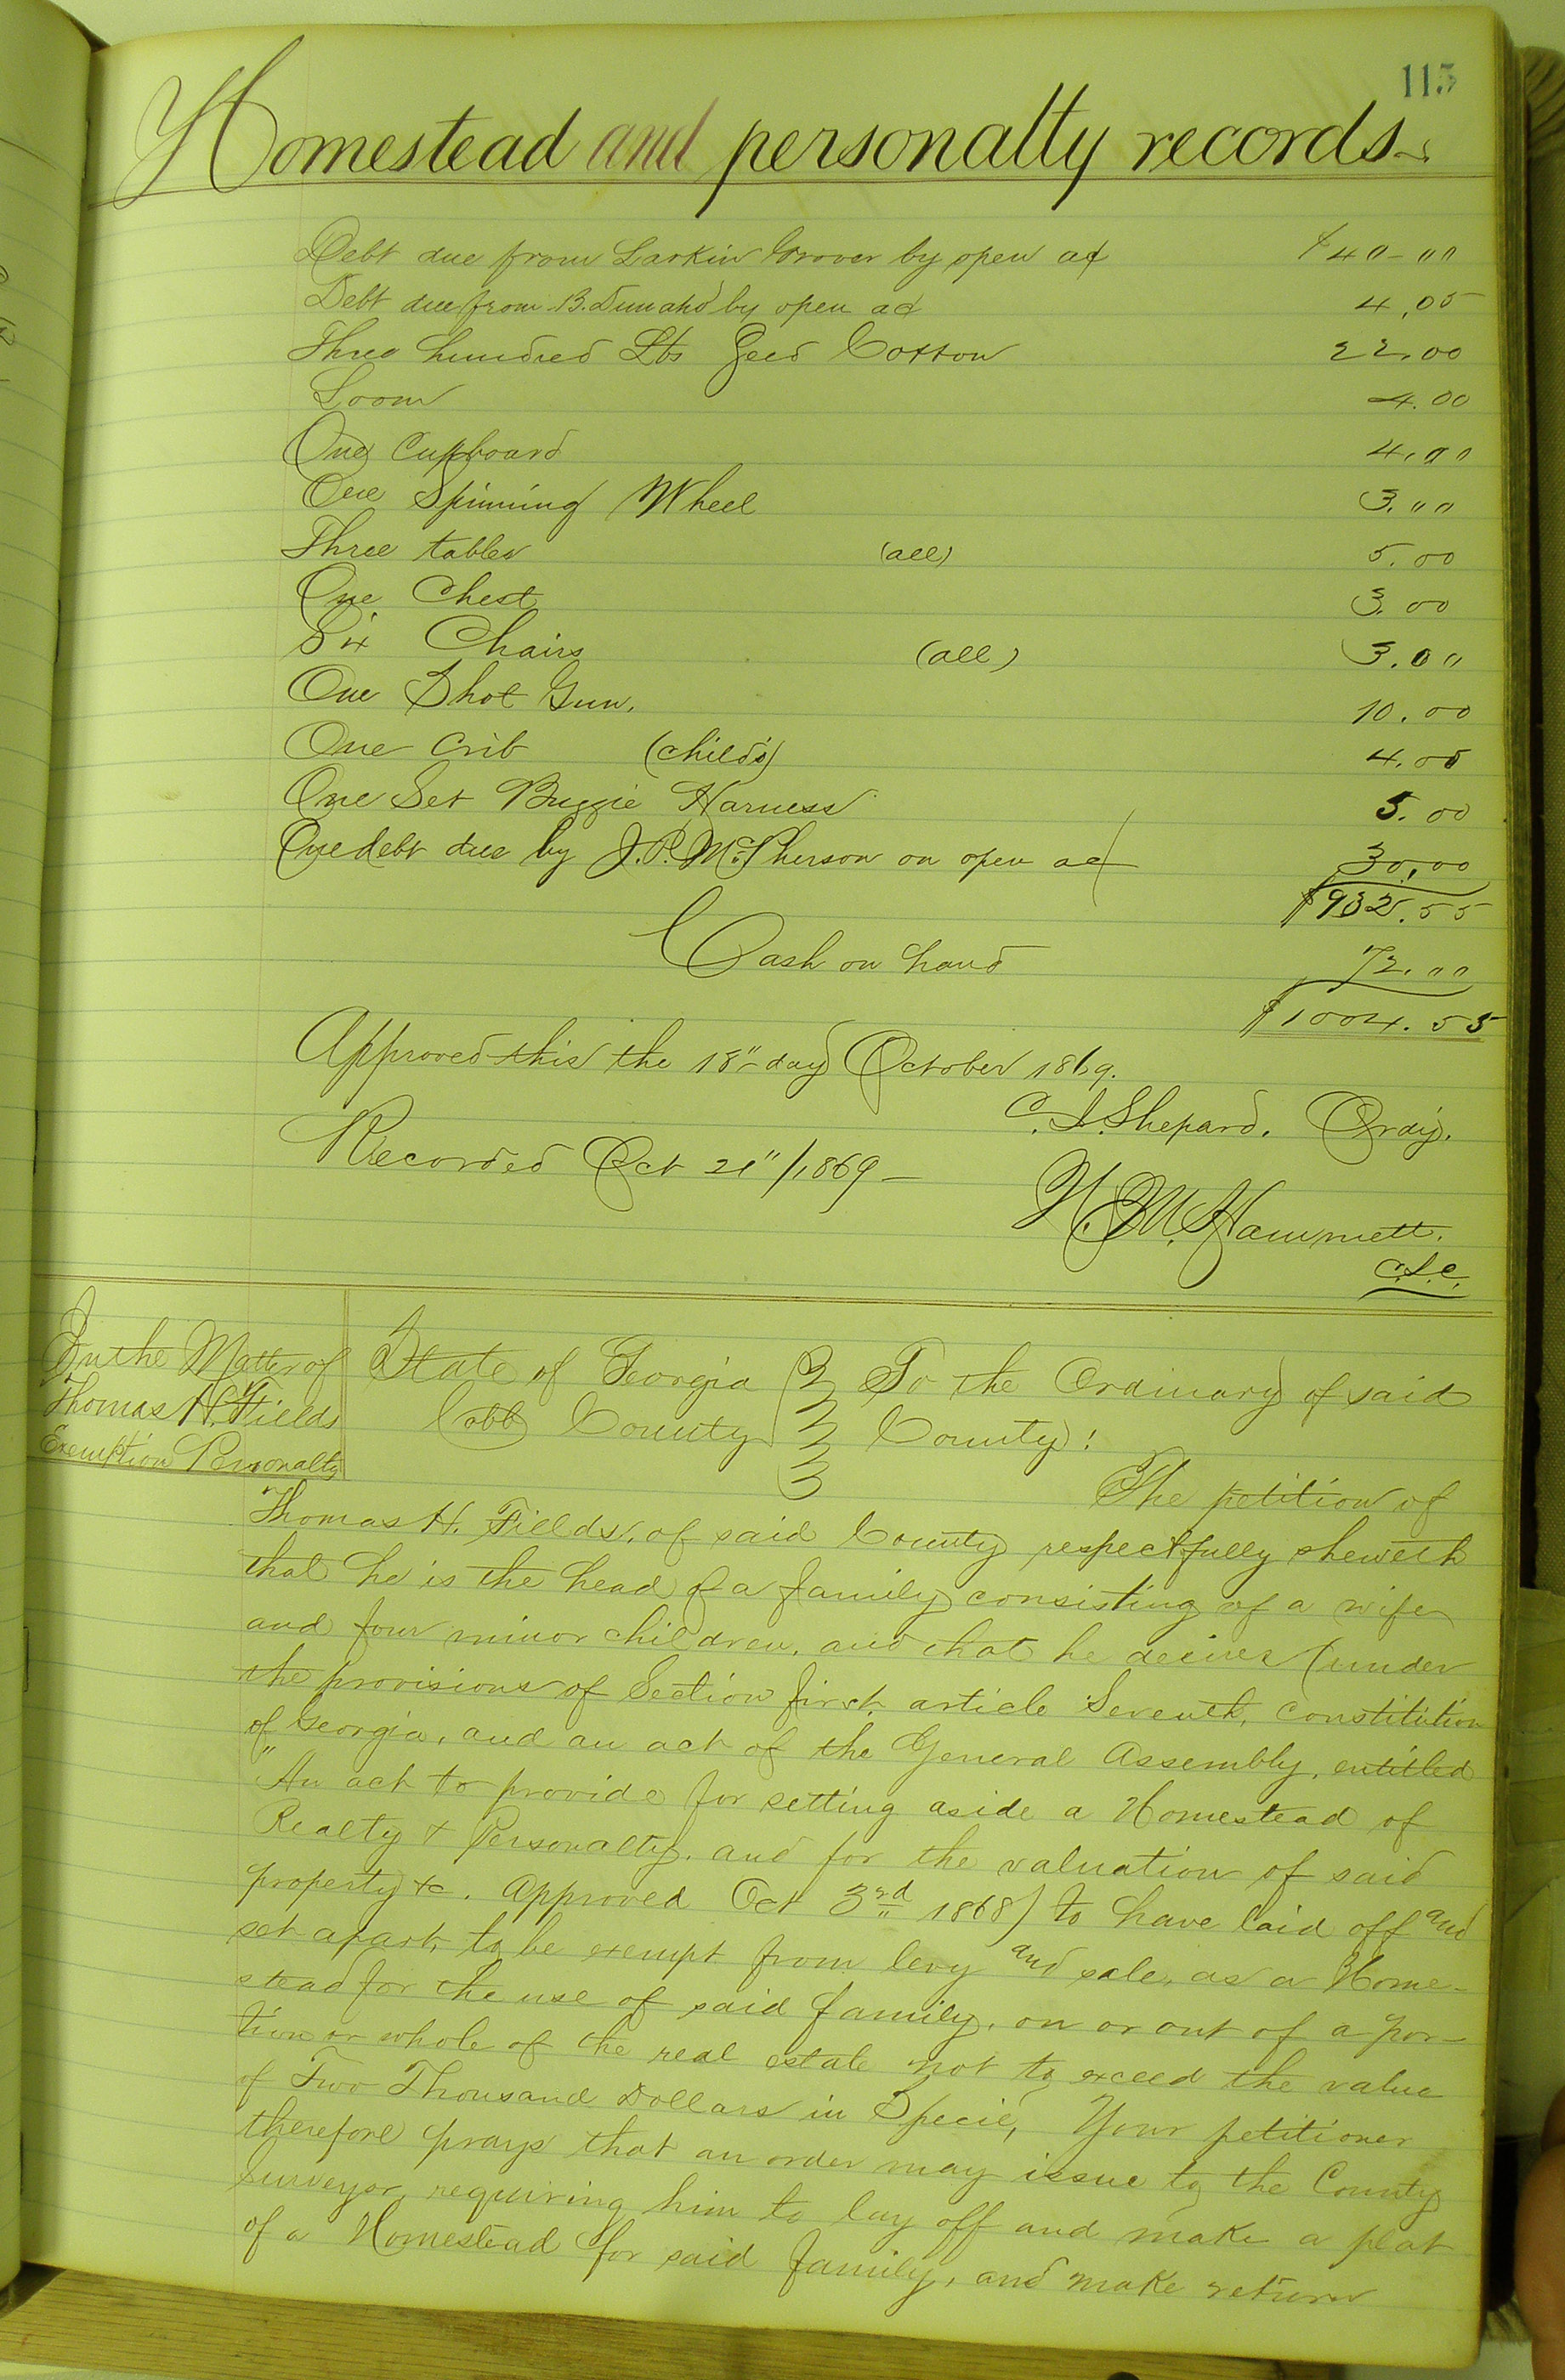 115
Homestead and personalty records
Debt due from Larkin Grover by open act $40-00
Debt due from B. by open act 4.05
Three hundred Lbs Seed Cotton 22.00
Loom 4.00
One Cupboard 4.00
One Spinning Wheel 3.00
Three tables (all) 5.00
One Chest 3.00
Six Chairs (all) 3.00
One Shot Gun. 10.00
One Crib (child's) 4.00
One Set Buggie Harness 5.00
One debt due by J.P. McPherson on open act 30.00
$932.55
Cash on hand 72.00
$1004.55
Approved this the 18" day October 1869.
C. I. Shepard. Ordy.
Recorded Oct 21"/1869 -
N. M. Hammett.
C.S.C.
In the Matter of
Thomas H. Fields
Exemption Personalty
State of Georgia } To the Ordinary of said
Cobb County } County:
The petition of
Thomas H. Fields, of said County respectfully sheweth
that he is the head of a family consisting of a wife
and four minor children, and that he desires (under
the provisions of Section first, article Seventh, constitution
of Georgia, and an act of the General Assembly, entitled
"An act to provide for setting aside a Homestead of
Realty & Personalty, and for the valuation of said
property &c. Approved Oct 3rd 1868) to have laid off and
set apart, to be exempt from levy and sale, as a Home-
stead for the use of said family, on or out of a por-
tion or whole of the real estate not to exceed the value
of Two Thousand Dollars in Specie, Your petitioner
therefore prays that an order may issue to the County
Surveyor, requiring him to lay off and make a plat
of a Homestead for said family, and make return